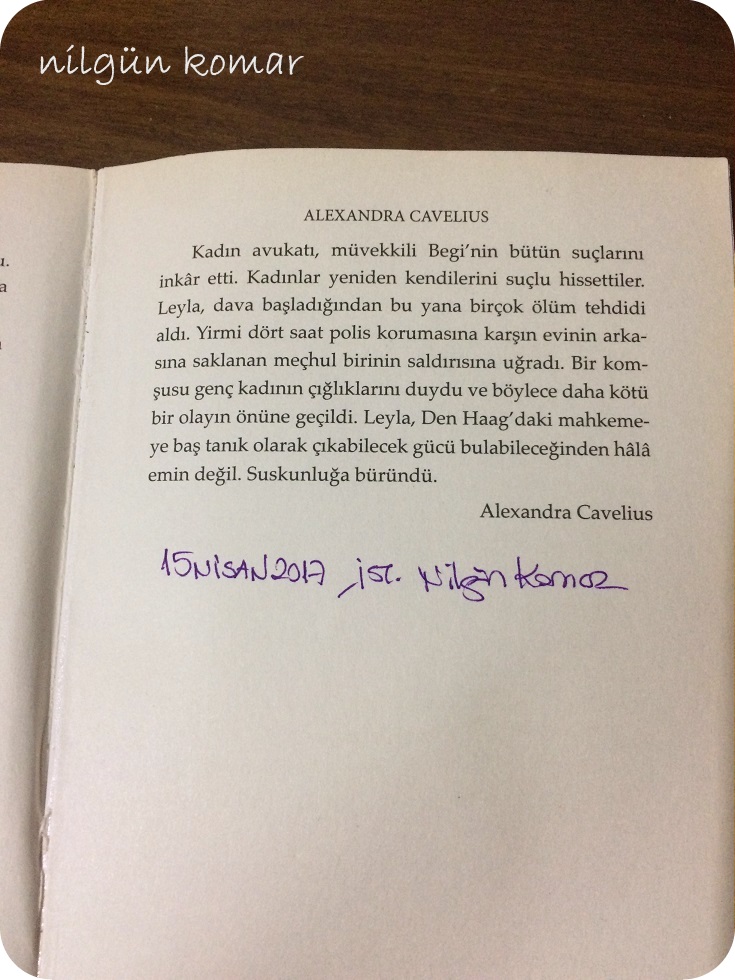 nilgün komar
u.
a
ALEXANDRA CAVELIUS
Kadın avukatı, müvekkili Begi’nin bütün suçlarını
inkâr etti. Kadınlar yeniden kendilerini suçlu hissettiler.
Leyla, dava başladığından bu yana birçok ölüm tehdidi
aldı. Yirmi dört saat polis korumasına karşın evinin arka-
sına saklanan meçhul birinin saldırısına uğradı. Bir kom-
şusu genç kadının çığlıklarını duydu ve böylece daha kötü
bir olayın önüne geçildi. Leyla, Den Haag’daki mahkeme-
ye baş tanık olarak çıkabilecek gücü bulabileceğinden hâlâ
emin değil. Suskunluğa büründü.
Alexandra Cavelius
15 NİSAN 2017, İST. Nilgün Komar